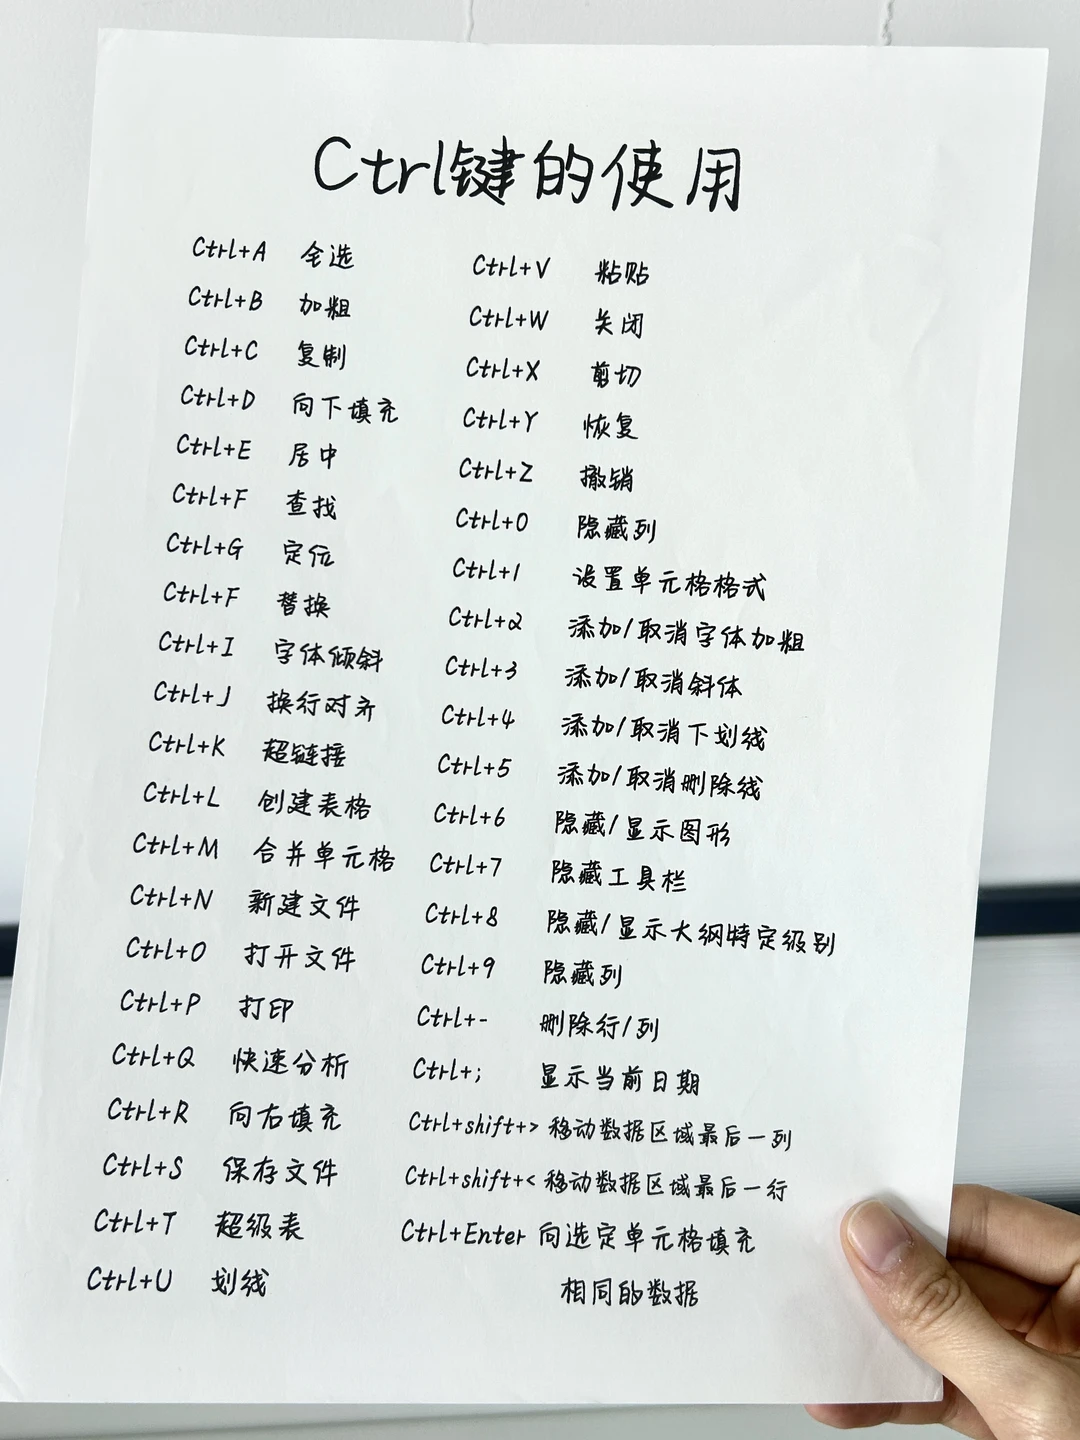 Ctrl键的使用
Ctrl+A 全选
Ctrl+B 加粗
Ctrl+C 复制
Ctrl+D 向下填充
Ctrl+E 居中
Ctrl+F 查找
Ctrl+G 定位
Ctrl+F 替换
Ctrl+I 字体倾斜
Ctrl+J 换行对齐
Ctrl+K 超链接
Ctrl+L 创建表格
Ctrl+M 合并单元格
Ctrl+N 新建文件
Ctrl+O 打开文件
Ctrl+P 打印
Ctrl+Q 快速分析
Ctrl+R 向右填充
Ctrl+S 保存文件
Ctrl+T 超级表
Ctrl+U 划线
Ctrl+V 粘贴
Ctrl+W 关闭
Ctrl+X 剪切
Ctrl+Y 恢复
Ctrl+Z 撤销
Ctrl+0 隐藏列
Ctrl+1 设置单元格格式
Ctrl+2 添加/取消字体加粗
Ctrl+3 添加/取消斜体
Ctrl+4 添加/取消下划线
Ctrl+5 添加/取消删除线
Ctrl+6 隐藏/显示图形
Ctrl+7 隐藏工具栏
Ctrl+8 隐藏/显示大纲特定级别
Ctrl+9 隐藏列
Ctrl+- 删除行/列
Ctrl+; 显示当前日期
Ctrl+shift+> 移动数据区域最后一列
Ctrl+shift+< 移动数据区域最后一行
Ctrl+Enter 向选定单元格填充
相同的数据